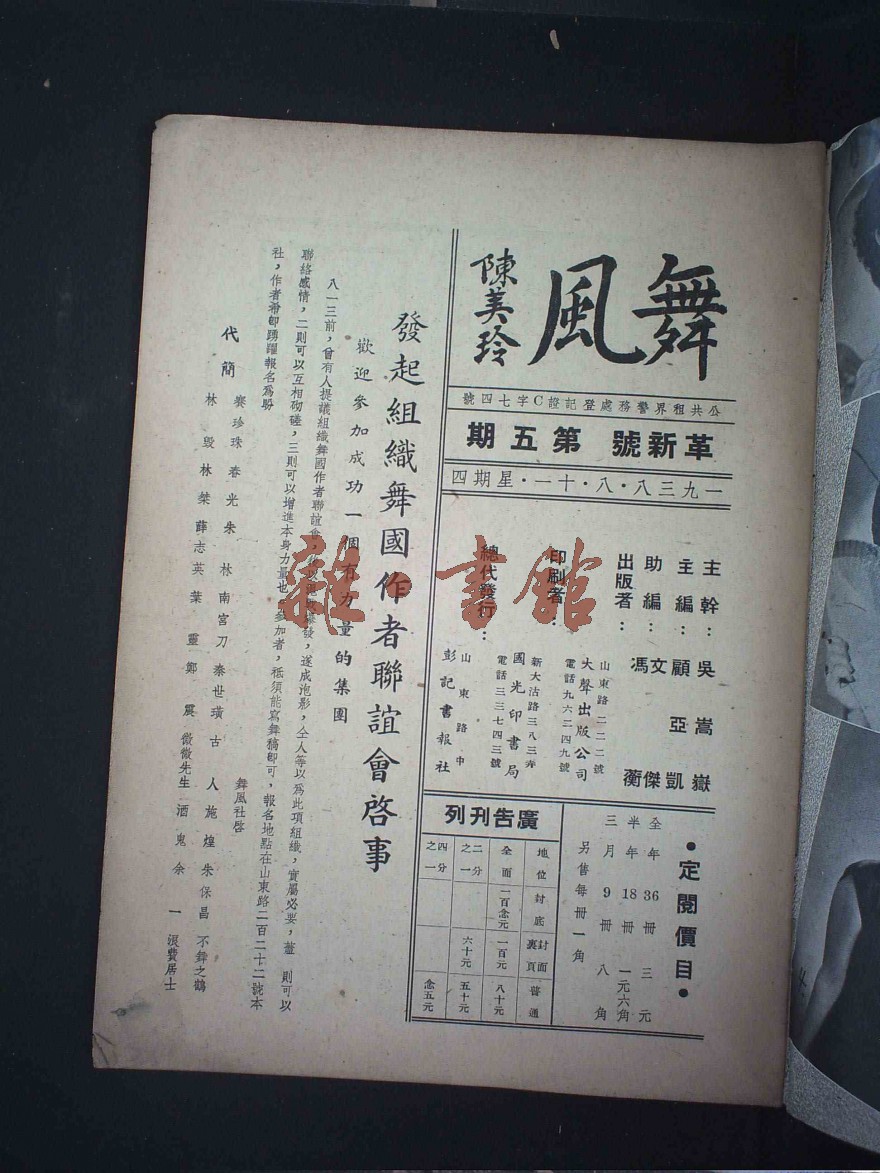 舞風
陳美玲
公共租界警務處登記證C字七四號
革新號 第五期
一九三八·八·十一·星期四
主幹：吳嵩嶽
主編：顧亞凱
助編：文傑
馮蘅
出版者：
山東路二二二號
大聲出版公司
電話九六二四九號
印刷者：
新大沽路三八三弄
國光印書局
電話三三七四三號
總代發行：
山東路中
彭記書報社
·定閱價目·
全年36冊三元
半年18冊一元六角
三月9冊八角
另售每冊一角
廣告刊列
地位 封底 封面裏頁 普通
全面 一百念元 一百元 八十元
二分之一 六十元 五十元
四分之一 念五元
發起組織舞國作者聯誼會啓事
歡迎參加成功一個有力量的集團
八一三前，曾有人提議組織舞國作者聯誼會，發，遂成泡影，仝人等以爲此項組織，實屬必要，蓋 則可以
聯絡感情，二則可以互相砌磋，三則可以增進本身力量也，參加者，祗須能寫舞稿即可，報名地點在山東路二百二十二號本
社，作者希卽踴躍報名爲盼
舞風社啓
代簡
賽珍珠 春光 朱林 南宮刀 秦世璜 古人 施煌 朱保昌 不舞之鶴
林毀 林桀 薛志英 葉靈 鄭震 微微先生 酒鬼 余一 浪費居士
雜·書館